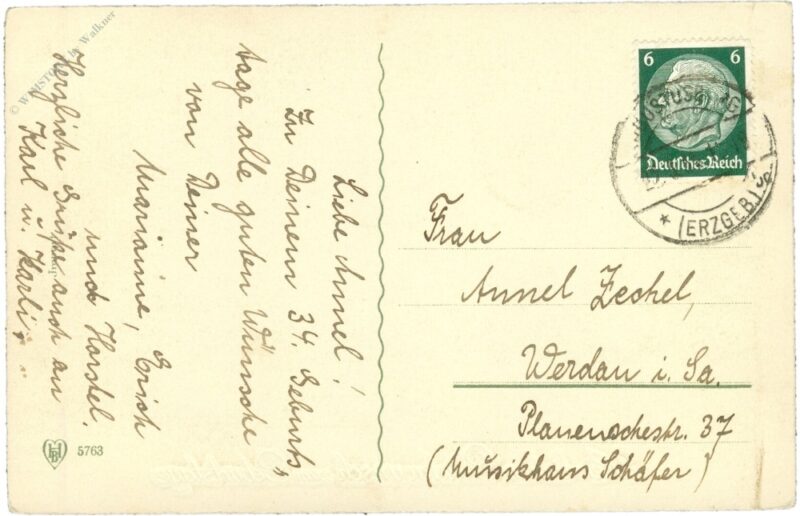 Liebe Annel!
Zu Deinem 34. Geburts,
tage alle guten Wünsche
von Deiner
Marianne, Erich
und Horstel.
Herzliche Grüße auch an
Karl u. Karli.
Frau
Annel Zeckel,
Werdau i. Sa.
Plauenschestr. 37
(Musikhaus Schäfer)
6 6
Deutsches Reich
(ERZGEB.)
HB
5763
by Walkner